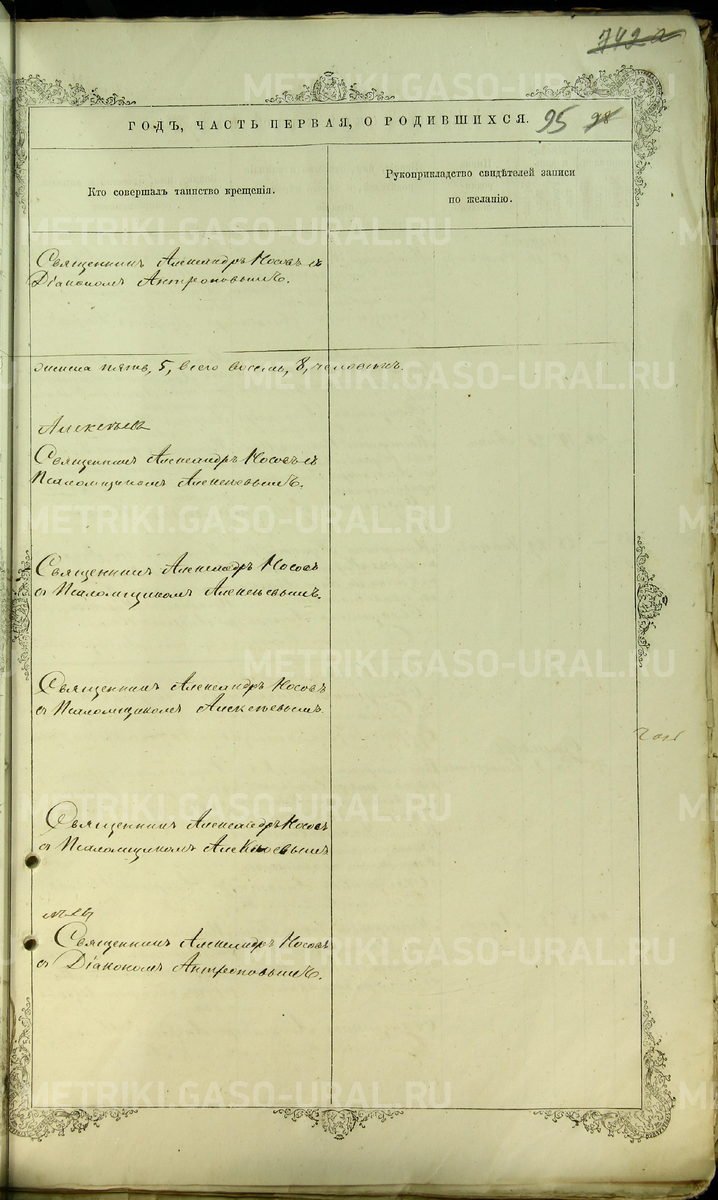 742 а
ГОДЪ, ЧАСТЬ ПЕРВАЯ, О РОДИВШИХСЯ. 95 98
Кто совершалъ таинство крещенія.
Рукоприкладство свидѣтелей записи
по желанію.
Священникъ Александръ Носовъ съ
Діакономъ Антроповымъ.
пять, 5, всего восемь, 8, человѣкъ.
Священникъ Александръ Носовъ съ
Псаломщикомъ Алексѣевымъ.
Священникъ Александръ Носовъ
съ Псаломщикомъ Алексѣевымъ.
Священникъ Александръ Носовъ
съ Псаломщикомъ Алексѣевымъ.
Священникъ Александръ Носовъ
съ Псаломщикомъ Алексѣевымъ
Священникъ Александръ Носовъ
съ Діакономъ Антроповымъ.
METRIKI.GASO-URAL.RU